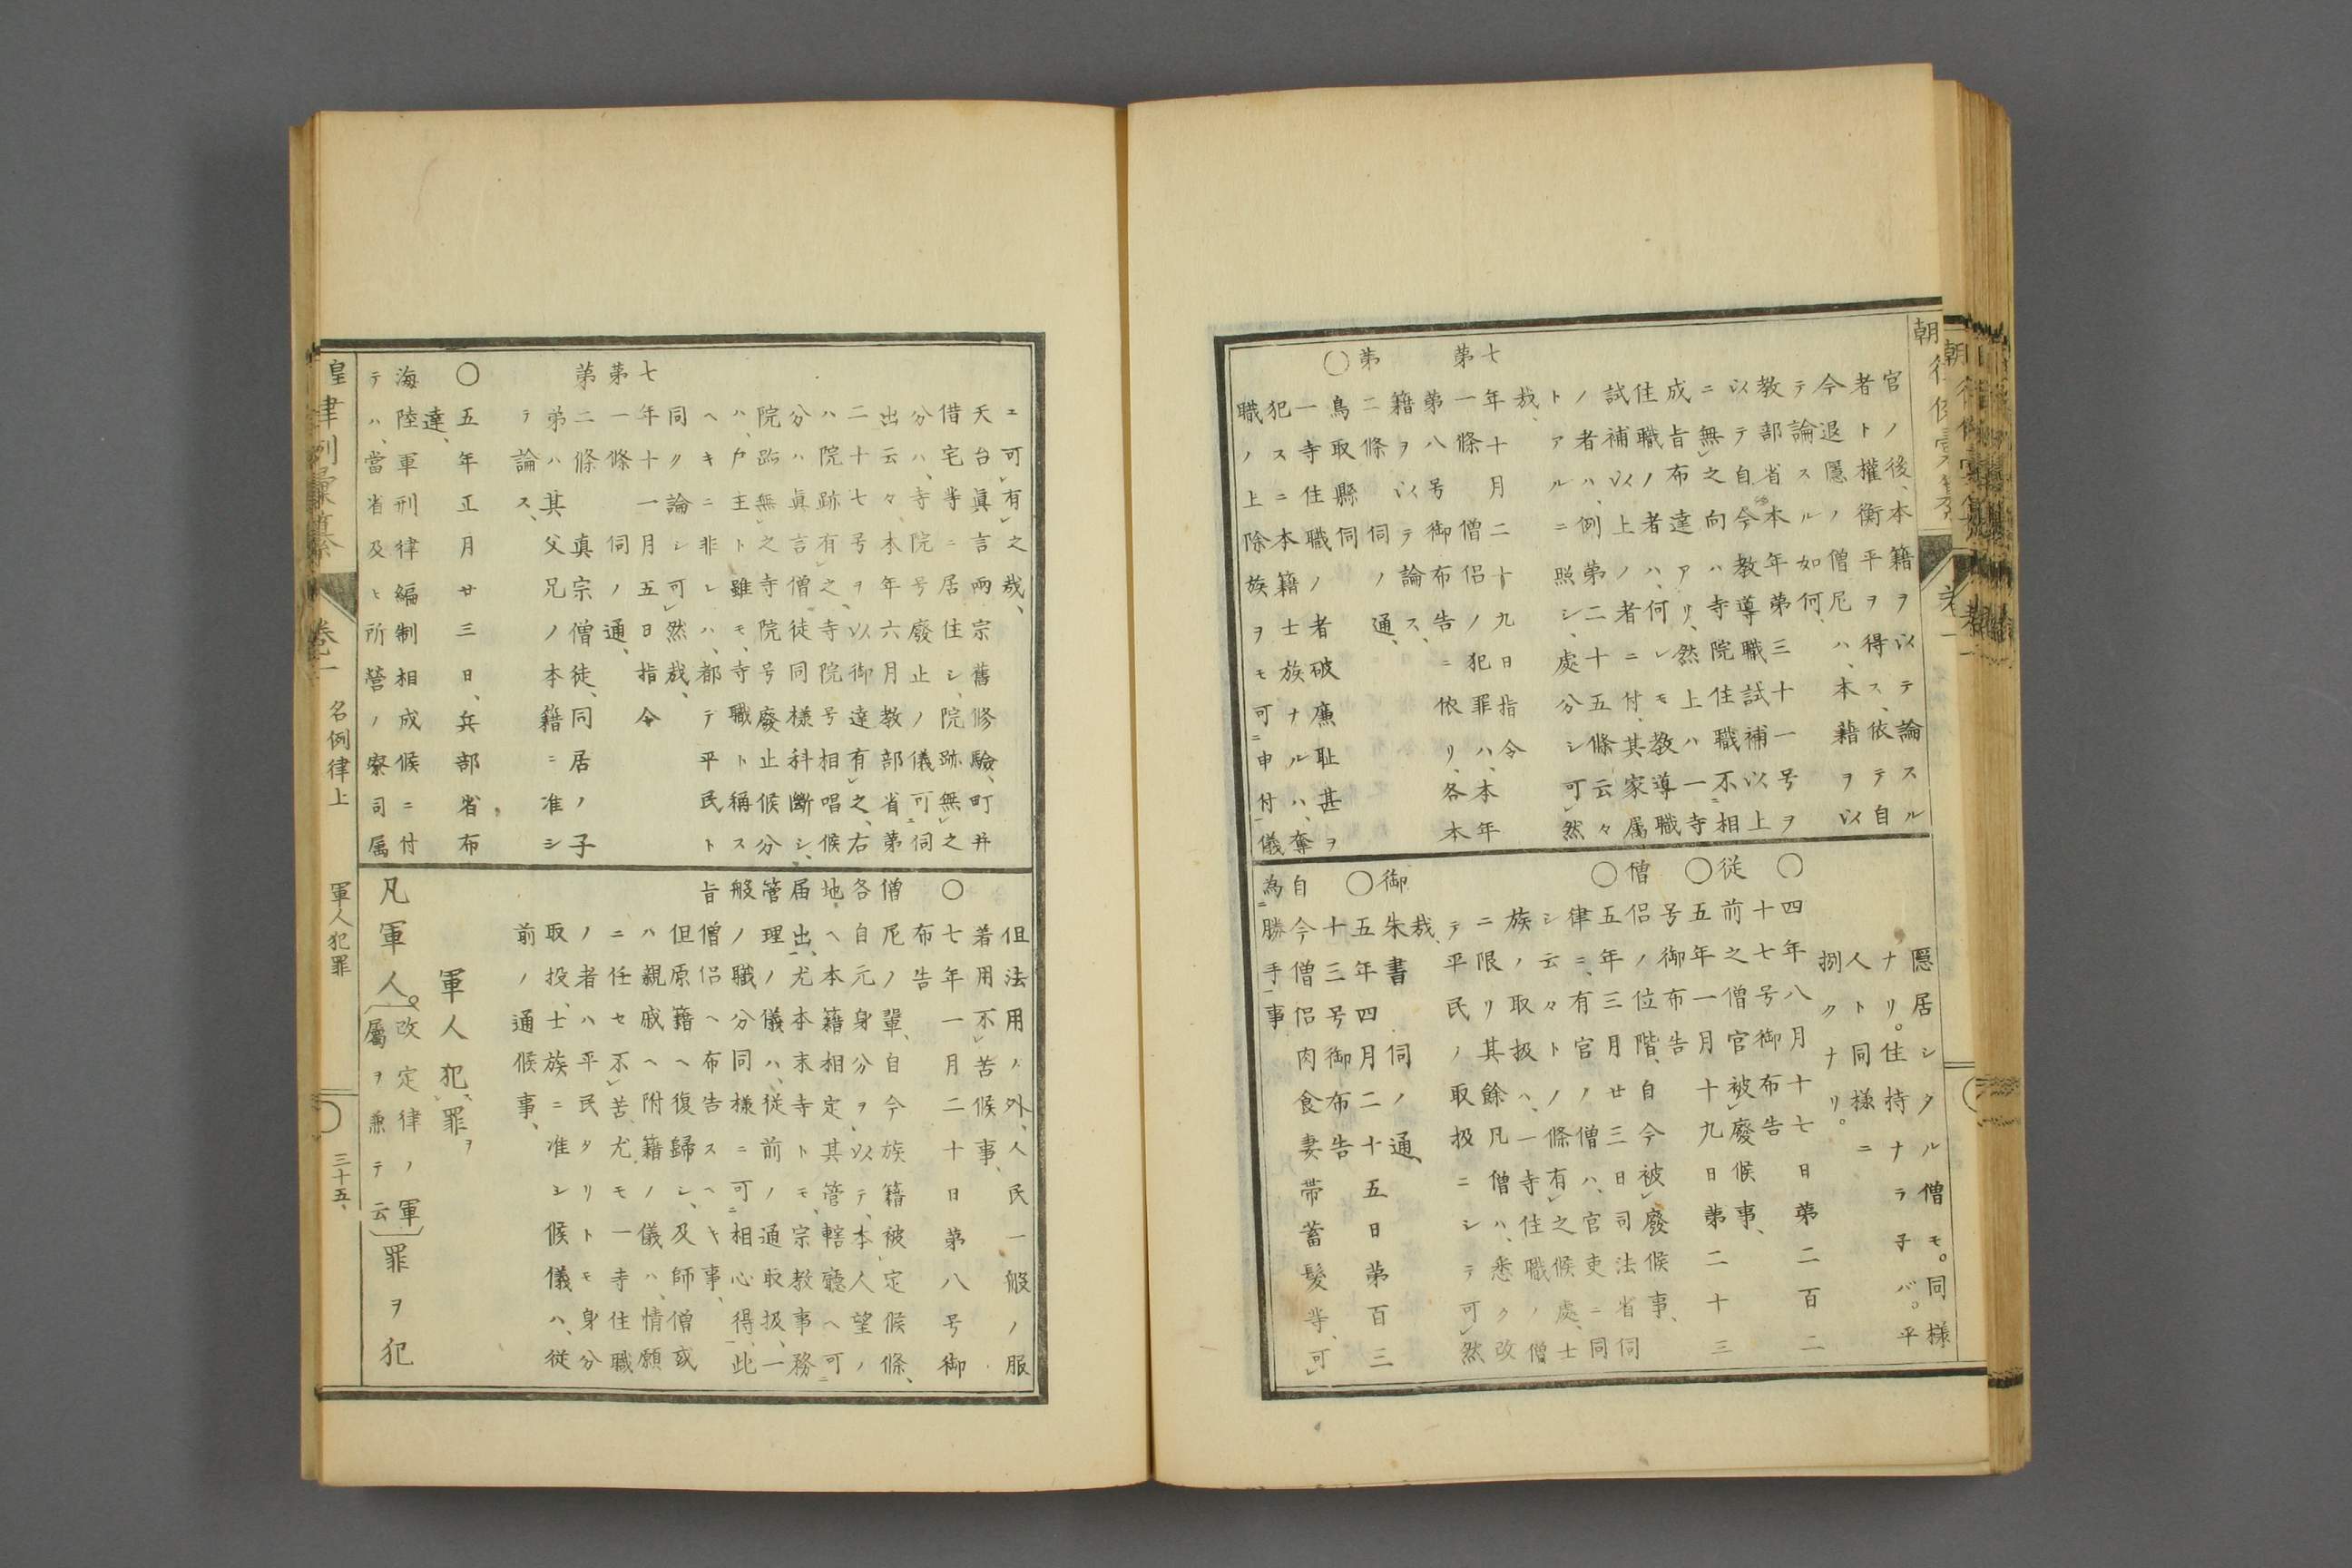 官ノ後、本籍ヲ以テ論スル
者ト權衡平ヲ得ス、依テ自
今退隱ノ僧尼ハ、本籍ヲ以
テ論スル如何、
教部省本年第三十一号ヲ
以テ自今教導職試補以上
ニ無之向ハ寺院住職不相
成旨布達アリ、然上ハ一寺
住職ノ者ハ、何レモ教導職
試補以上ノ者ニ付、其家属
ノ者ハ、例第二十五條云々
トアルニ照シ、處分シ可然
哉、
七年十月二十九日指令
第一條僧侶ノ犯罪ハ、本年
第八号御布告ニ依リ、各本
籍ヲ以テ論ス、
第二條伺ノ通、
○鳥取縣伺
一寺住職ノ者破廉耻甚ヲ
犯スニ本籍士族ナルハ、奪
職ノ上除族ヲモ可申付儀
隱居シタル僧モ。同様
ナリ。住持ナラ子バ。平
人ト同様ニ
捌クナリ。
○四年八月十七日第二百二
十七号御布告
従前之僧官被廢候事、
○五年一月十九日第二十三
号御布告
僧侶ノ位階、自今被廢候事、
○五年三月廿三日司法省伺
律ニ、有官ノ僧ハ、官吏ニ同
シ云々ノ條有之候處、士
族ノ取扱ハ、一寺住職ノ僧
ニ限リ其餘凡僧ハ、悉ク改
テ平民ノ取扱ニシテ可然
哉、
御朱書 伺ノ通、
○五年四月二十五日第百三
十三号御布告
自今僧侶肉食妻帯蓄髮等、可
為勝手事、
ヱ可有之哉、
天台眞言兩宗舊修驗、町并
借宅等ニ居住シ、院跡無之
分ハ、寺院号廢止ノ儀可伺
出云々、本年六月教部省第
二十七号ヲ以御達有之、右
ハ院跡有之、寺院号相唱候
分ハ眞言僧徒同様科斷シ、
院跡無之寺院号廢止候分
ハ、戸主ト雖モ、寺職ト稱ス
ヘキニ非レハ、都テ平民ト
同ク論シ可然哉、
七年十一月五日指令
第一條伺ノ通、
第二條真宗僧徒、同居ノ子
弟ハ其父兄ノ本籍ニ准シ
テ論ス、
○五年正月廿三日、兵部省布
達、
海陸軍刑律編制相成候ニ付
テハ、當省及ヒ所營ノ寮司属
但法用ノ外、人民一般ノ服
着用不苦候事、
○七年一月二十日第八号御
布告
僧尼ノ輩、自今族籍被定候條、
各自元身分ヲ以テ、本人望ノ
地ヘ本籍相定、其管轄廳ヘ可
届出、尤本末寺トモ、宗教事務
管理ノ儀ハ、従前ノ通取扱、一
般ノ職分同様ニ可相心得、此
旨僧侶ヘ布告スヘキ事、
但原籍ヘ復歸シ、及師僧或
ハ親戚ヘ附籍ノ儀ハ、情願
ニ任セ不苦、尤モ一寺住職
ノ者ハ平民タリトモ身分
取扱、士族ニ准シ候儀ハ、従
前ノ通候事、
軍人犯罪ヲ
凡軍人。〔改定律ノ軍属ヲ兼テ云〕罪ヲ犯
名例律上 軍人犯罪 三十五、